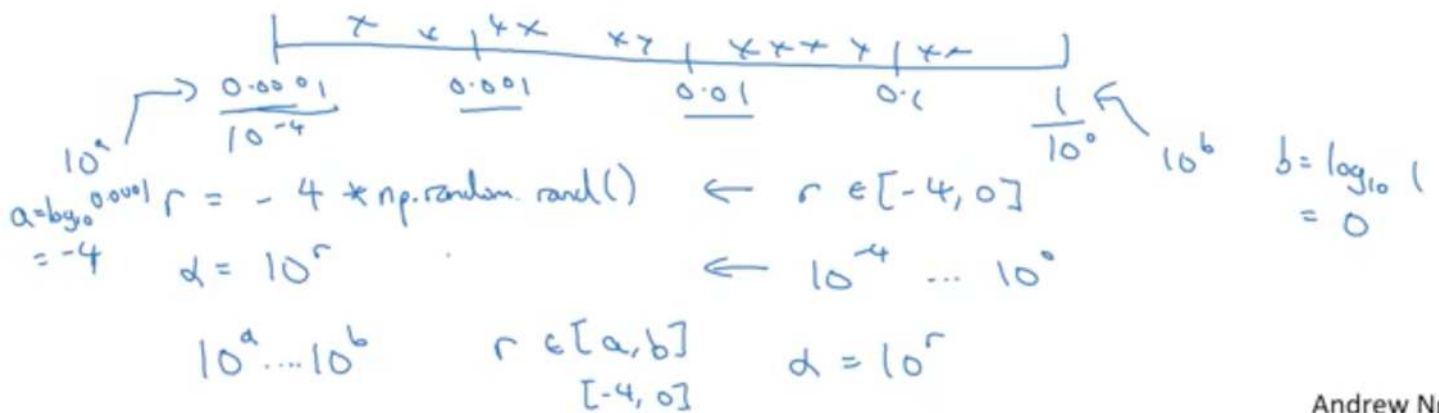 0.0001 0.001 0.01 0.1 1
10^-4 10^0
10^a 10^b b = log_10 1
= 0
a = log_10 0.0001
= -4
r = -4 * np.random.rand() ← r ∈ [-4, 0]
α = 10^r ← 10^-4 ... 10^0
10^a ... 10^b r ∈ [a, b] α = 10^r
[-4, 0]
Andrew Ng